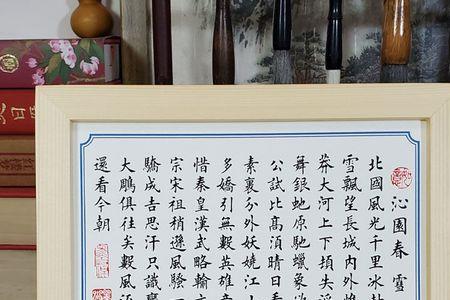 沁園春 雪
北國風光千里冰
雪飄望長城內外
莽大河上下頓失滔
舞銀蛇原馳蠟象
公試比高須晴日看
素裹分外妖嬈江
多嬌引無數英雄
惜秦皇漢武略輸
宗宋祖稍遜風騷一
驕成吉思汗只識彎
大鵰俱往矣數風流
還看今朝